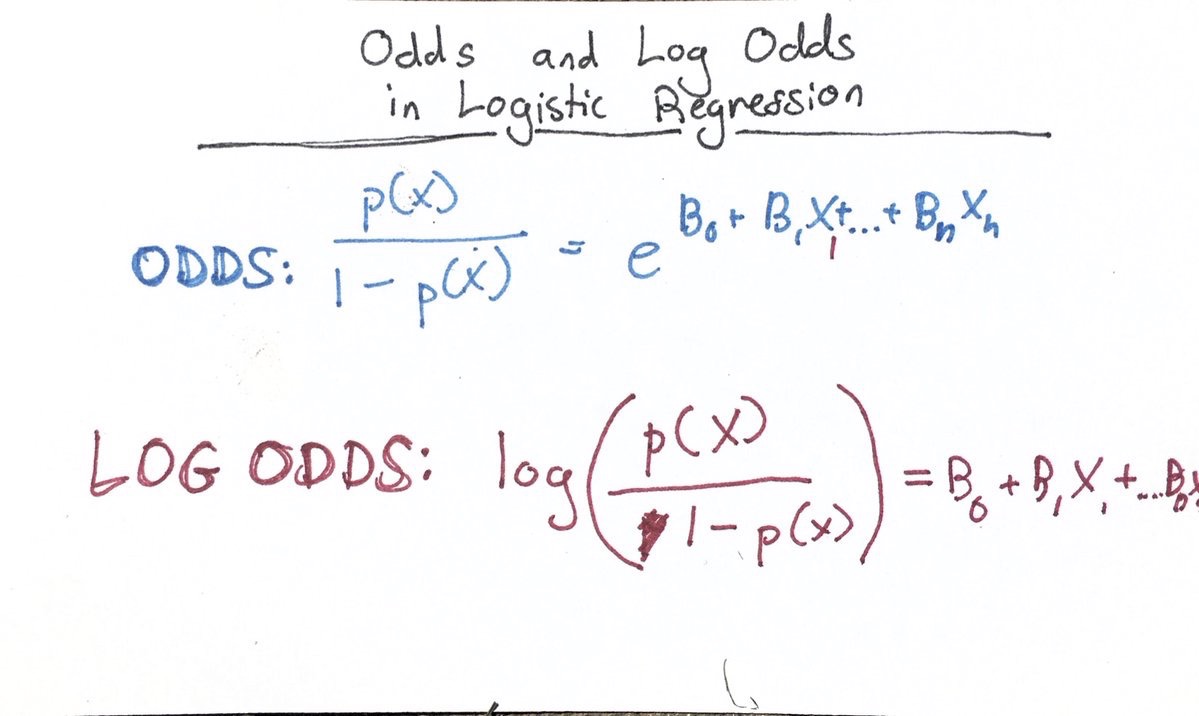 Odds and Log Odds
in Logistic Regression
ODDS: p(x) / 1 - p(x) = e^(B₀ + B₁X₁+...+ BₙXₙ)
LOG ODDS: log( p(X) / 1 - p(x) ) = B₀ + B₁X₁ +...Bₙx